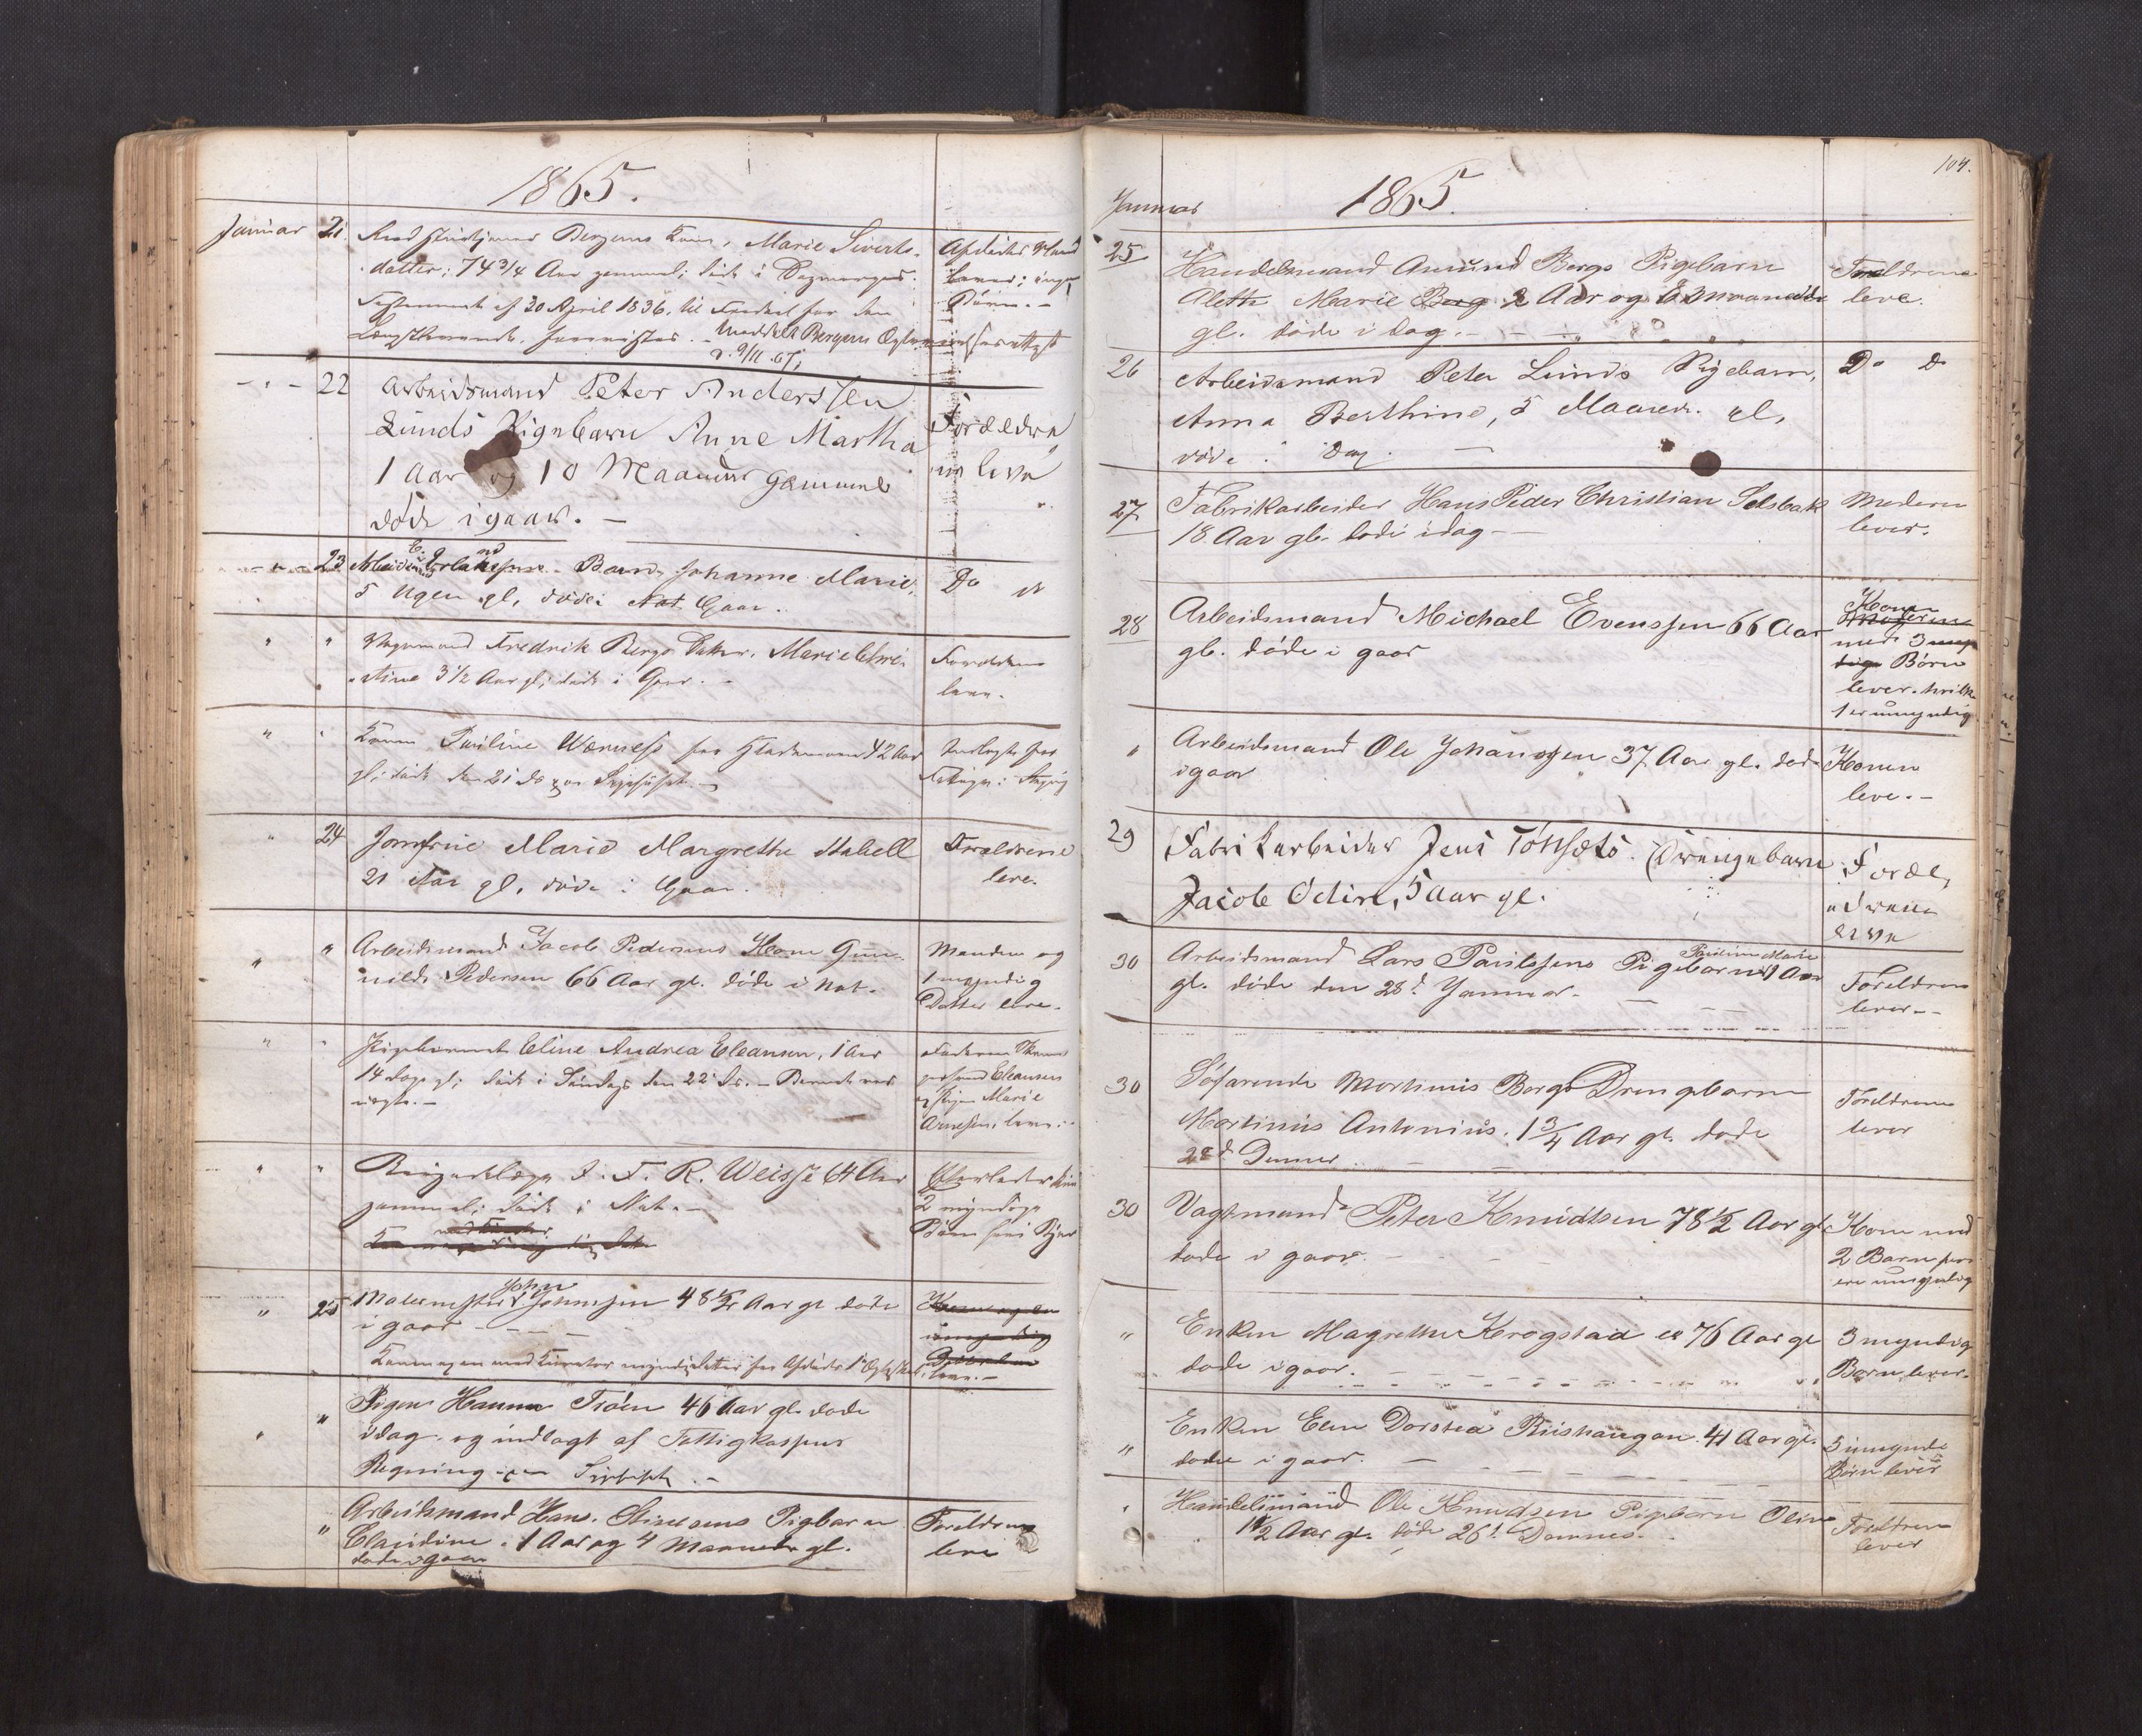 1865.
Januar 21. Marie Siverts-
datter; 74 3/4 Aar gammel; død i
Testament af 20 April 1836, til Fordeel for den
Længstlevende, forevistes. - Meddelt Bergers
d. 9/11. 67,
Afdødes Mand
lever; ingen
Børn. -
- " - 22 Arbeidsmand Peter Anderssen
Lunds Pigebarn Anne Martha
1 Aar og 10 Maaneder gammel
døde igaar. -
Foreldre
ne leve
23 Barn Johanne Marie,
5 Uger gl, døde i Gaar.
Do
" " Fredrik Bergs Datter, Marie Chri-
stine 3 1/2 Aar gl; død i Gaar. -
Forældrene
leve.
" " Konen Pauline Wærness fra 42 Aar
gl; død den 21 ds paa Sygehuset. -
Indlagt for
" 24 Jomfrue Marie Margrethe Stabell
21 Aar gl. døde i Gaar.
Foreldrene
leve.
" " Arbeidsmand Jacob Pedersens Kone Gun-
nild Pedersen 66 Aar gl. døde i Nat.
Manden og
1 myndig
Datter leve.
" " Pigebarnet Eline Andrea Eleansen, 1 Aar
14 dage gl; død i Søndags den 22 ds. - Barnet var
uægte. -
Faderen
Eleansen
og Pigen Marie
Arnesen, leve. -
" " F. R. Weisse 64 Aar
gammel; død i Nat. -
Efterlader kun
2 myndige
Børn
" 25 Malermester John Johnsen 48 1/2 Aar gl døde
i gaar - - - -
" Pigen Hanna Troen 46 Aar gl. døde
idag. og indlagt af Fattigkassens
Regning
" Arbeidsmand Hans Pigbarn
Claudine. 1 Aar og 4 Maaneder gl.
døde igaar
Foreldrene
leve
104.
Januar 1865.
25 Handelsmand Amund Bergs Pigebarn
Aleth Marie Berg 2 Aar og
gl. døde i dag. -
Foreldrene
leve.
26 Arbeidsmand Peter Lunds Pigebarn,
Anna Berthine, 5 Maaneder gl,
døde i Dag. -
Do Do
27 Fabrikarbeider Hans Peder Christian Selsbak
18 Aar gl. døde idag -
Moderen
lever.
28 Arbeidsmand Michael Evenssen 66 Aar
gl. døde i gaar
Konen
med 3
Børn
lever. hvilke
1 er umyndig
" Arbeidsmand Ole Johanssen 37 Aar gl. døde
igaar
Konen
leve. -
29 Fabrikarbeider Jens Tønsets. Drengebarn
Jacob Odin, 5 Aar gl.
Foræl,
drene
leve
30 Arbeidsmand Lars Paulssens Pigebarn Pauline Marie 1 Aar
gl. døde den 28d Januar. -
Foreldrene
lever. -
30 Søfarende Martinus Bergs Drengebarn
Martinus Antonius. 1 3/4 Aar gl. døde
28d Dennes
Foreldrene
lever
30 Vagtmand Peter Knudtsen 78 1/2 Aar gl
døde i gaar.
Kone med
2 Barn
ere umyndig
" Enken Magrethe Krogstad 76 Aar gl
døde igaar.
3 myndig
Barn lever.
" Enken Elen Dorthea Riishaugan. 41 Aar gl.
døde i gaar.
3 umynde
Børn lever
" Handelsmand Ole Knudsen Pigebarn Oline
1 1/2 Aar gl. døde 26d Dennes.
Foreldrene
lever